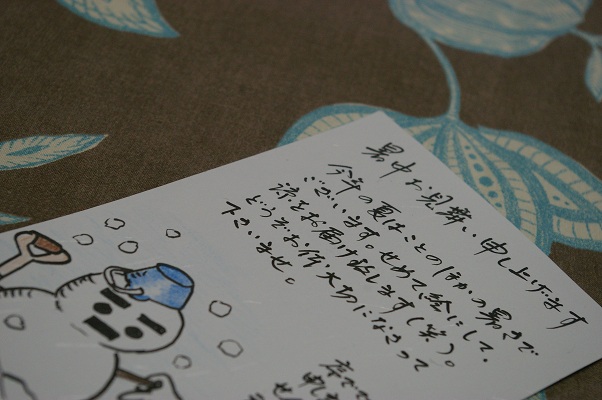 暑中お見舞い申し上げます
今年の夏はことのほかの暑さで
ございます。せめて絵にして、
涼をお届け致します(笑)。
どうぞお体大切になさって
下さいませ。